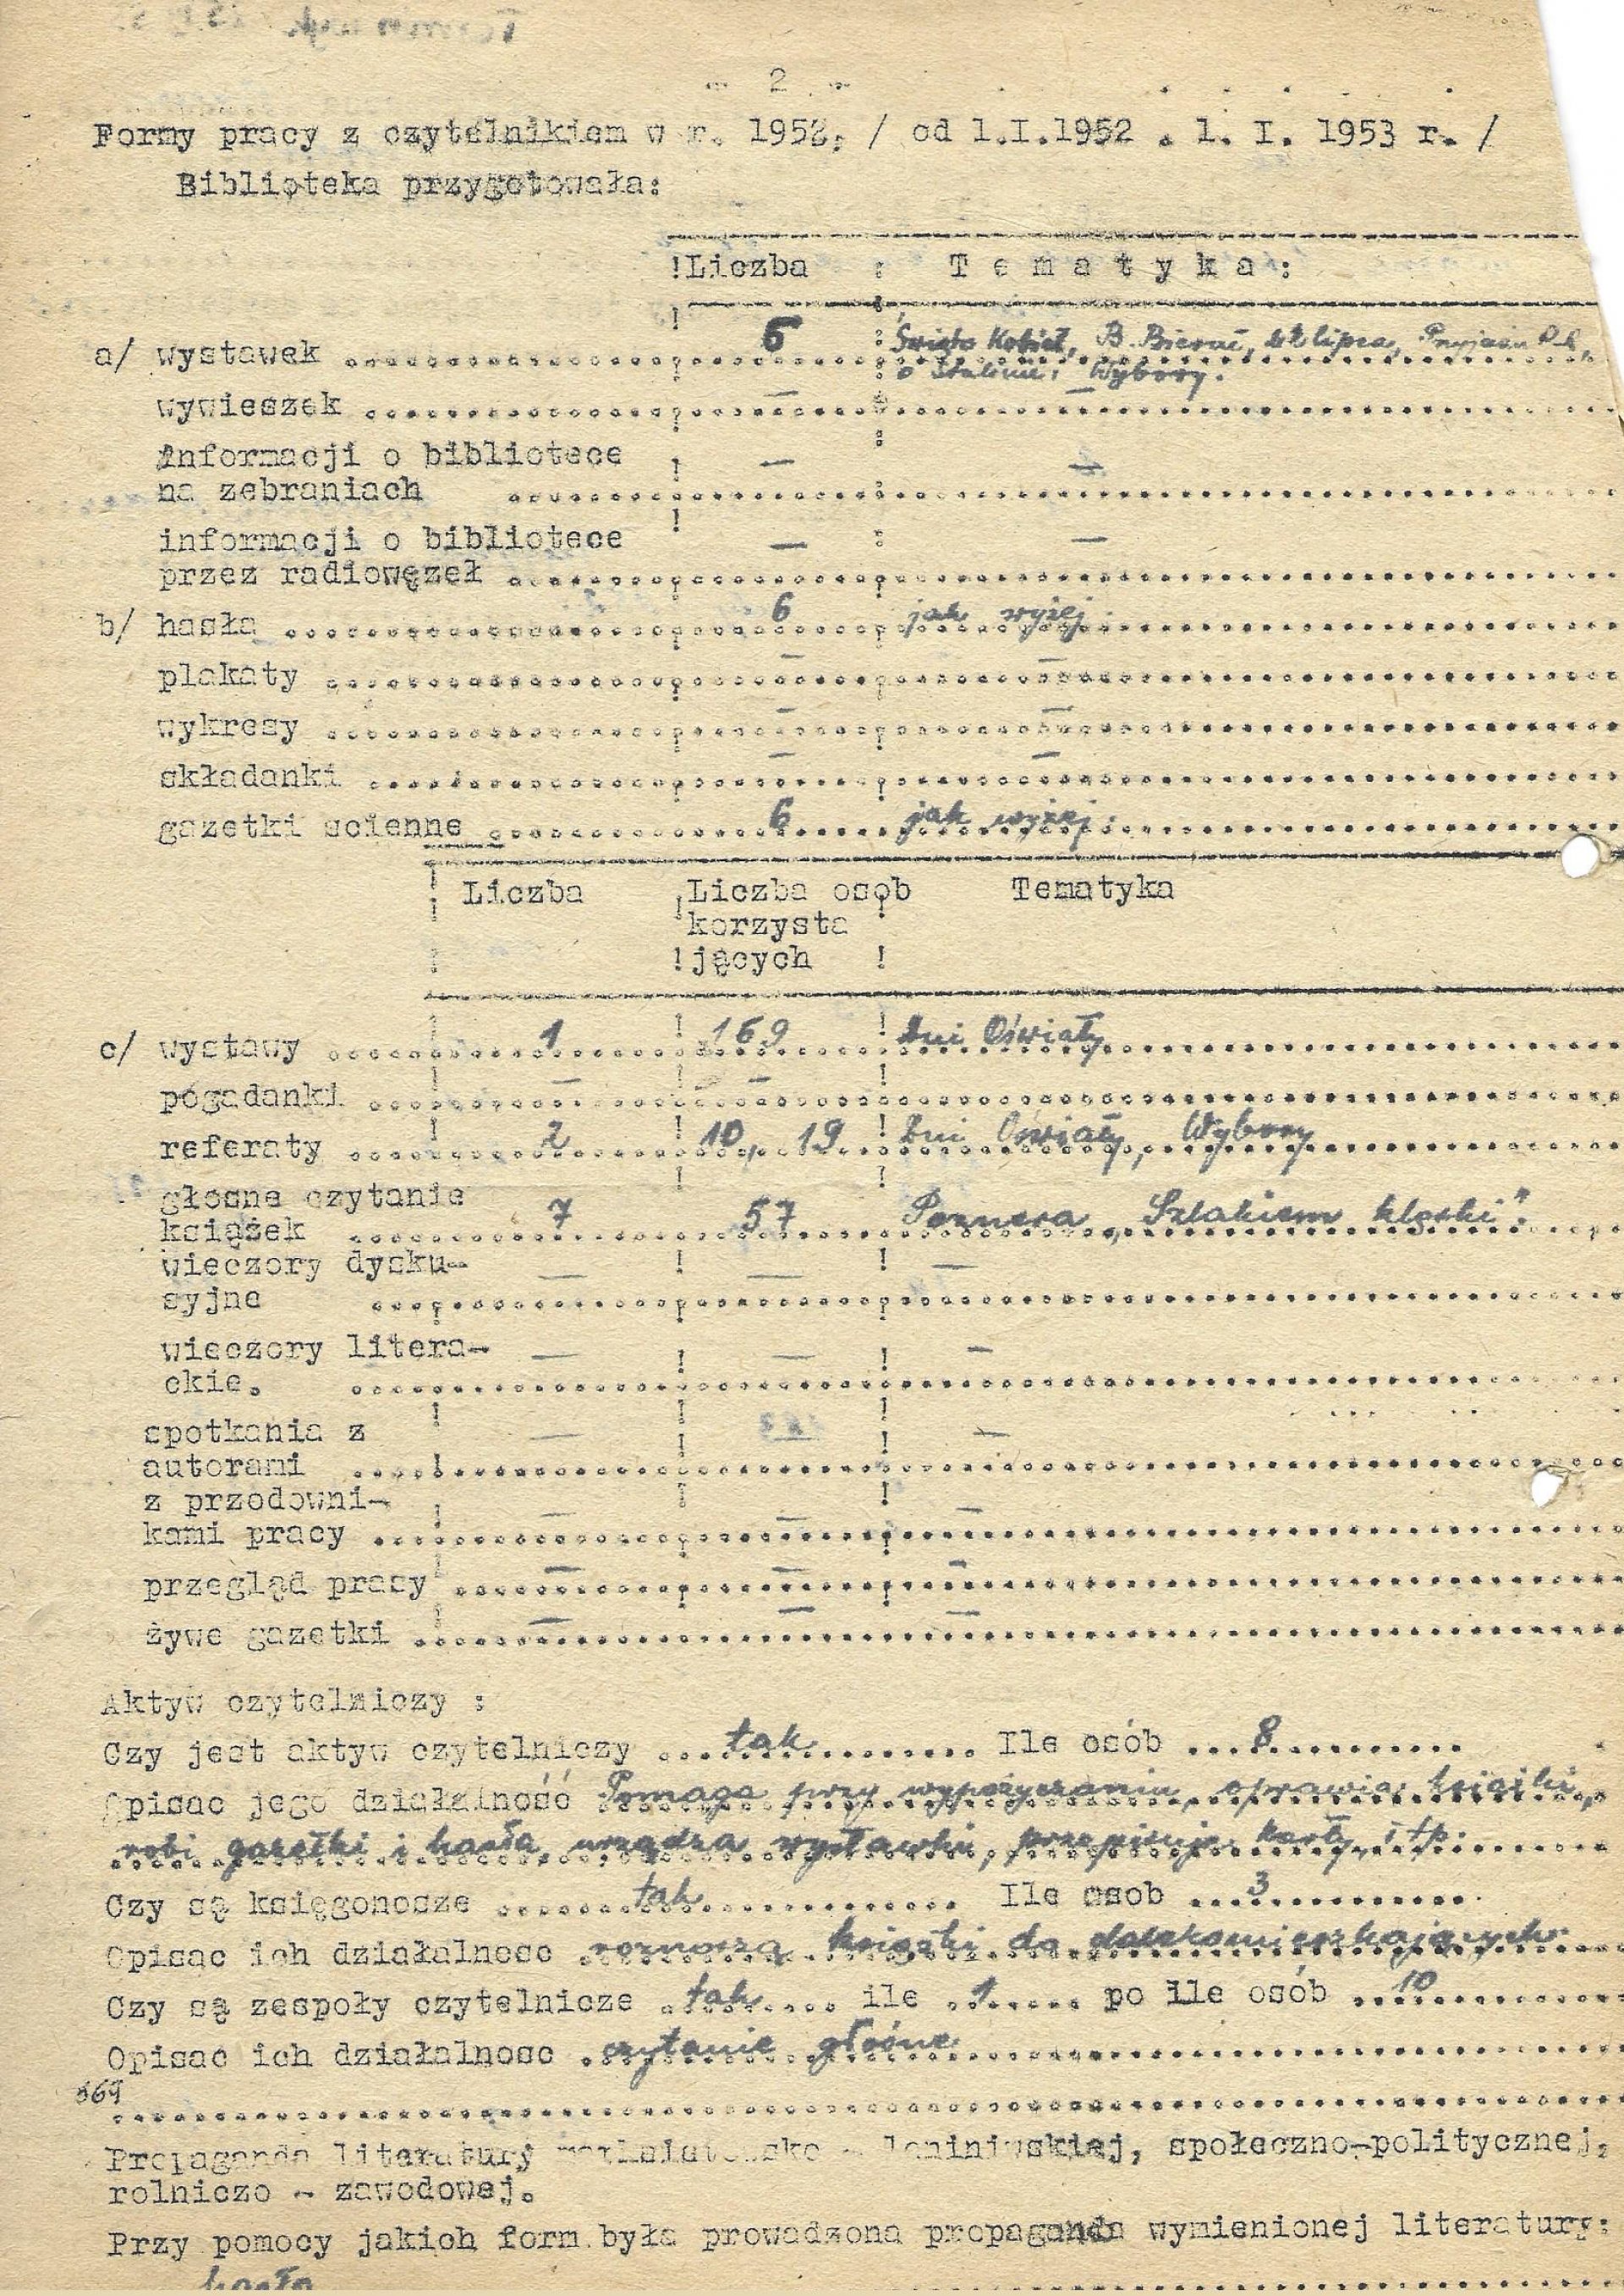 - 2 -
Formy pracy z czytelnikiem w r. 1952. / od 1.I.1952 . 1. I. 1953 r. /
Biblioteka przygotowała:
!Liczba : T e m a t y k a :
a/ wystawek ........ 6 Święto Kobiet, B. Bierut, 22 lipca, Przyjaźń P.R.,
o Stalinie, Wybory.
wywieszek ........ — —
informacji o bibliotece — —
na zebraniach ........
informacji o bibliotece — —
przez radiowęzeł ........
b/ hasła ........ 6 jak wyżej.
plakaty ........ — —
wykresy ........ — —
składanki ........ — —
gazetki scienne ........ 6 jak wyżej.
Liczba Liczba osob Tematyka
korzysta
jących
c/ wystawy ........ 1 169 Dni Oświaty
pogadanki ........ — —
referaty ........ 2 10, 19 Dni Oświaty, Wybory
głosne czytanie
książek ........ 7 57 Poznera „Szlakiem klęski".
wieczory dysku- — — —
syjne ........
wieczory litera- — — —
ckie. ........
spotkania z — — —
autorami ........
z przodowni- — — —
kami pracy ........
przegląd prasy ........ — — —
żywe gazetki ........ — — —
Aktyw czytelniczy :
Czy jest aktyw czytelniczy ... tak ........ Ile osób ... 8 ........
Opisac jego działalność Pomaga przy wypożyczaniu, oprawia książki,
robi gazetki i hasła, urządza wystawki, przepisuje karty, i tp.
Czy są księgonosze ........ tak ........ Ile osob ... 3 ........
Opisac ich działalnosc roznoszą książki do dalekomieszkających.
Czy są zespoły czytelnicze . tak .... ile . 1 ..... po ile osób ... 10 ........
Opisac ich działalnosc . czytanie głośne ........
569
........
Propaganda literatury - leninowskiej, społeczno-politycznej,
rolniczo - zawodowej.
Przy pomocy jakich form była prowadzona propaganda wymienionej literatury:
hasła